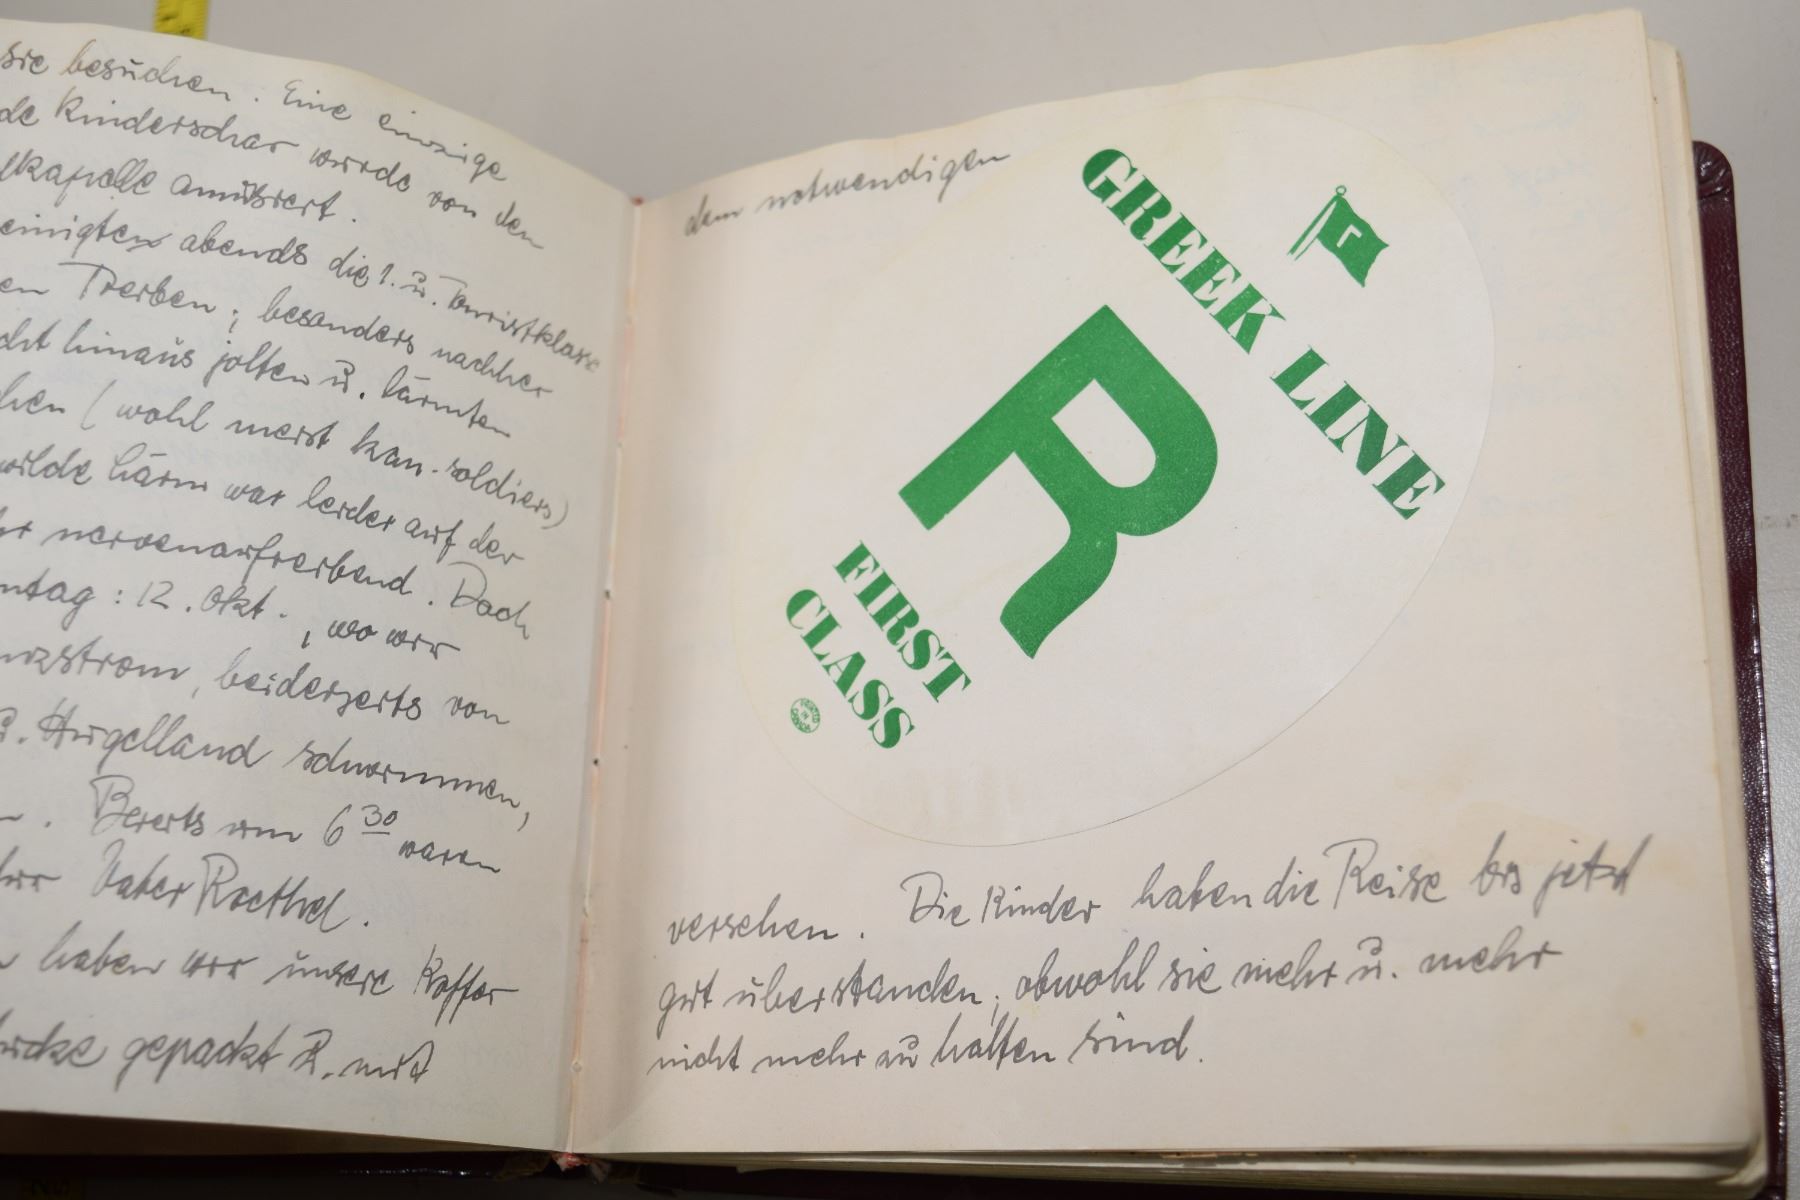 sie besuchen. Eine einzige
de Kinderschar wurde von den
lkapelle amüsiert.
einigten abends die 1. u. Touristklasse
en Treiben; besonders nachher
cht hinaus jolten u. lärmten
hen (wohl meist kan. soldiers)
wilde Lärm war leider auf der
hr nervenaufreibend. Doch
ntag: 12. Okt., wo wir
nzstrom, beiderseits von
u. Hügelland schwammen,
n. Bereits um 6 30 waren
Vater Roethel.
n haben wir unsere Koffer
gepackt u. mit
dem notwendigen
GREEK LINE
Γ
R
FIRST
CLASS
PRINTED
IN
CANADA
versehen. Die Kinder haben die Reise bis jetzt
gut überstanden, obwohl sie mehr u. mehr
nicht mehr zu halten sind.